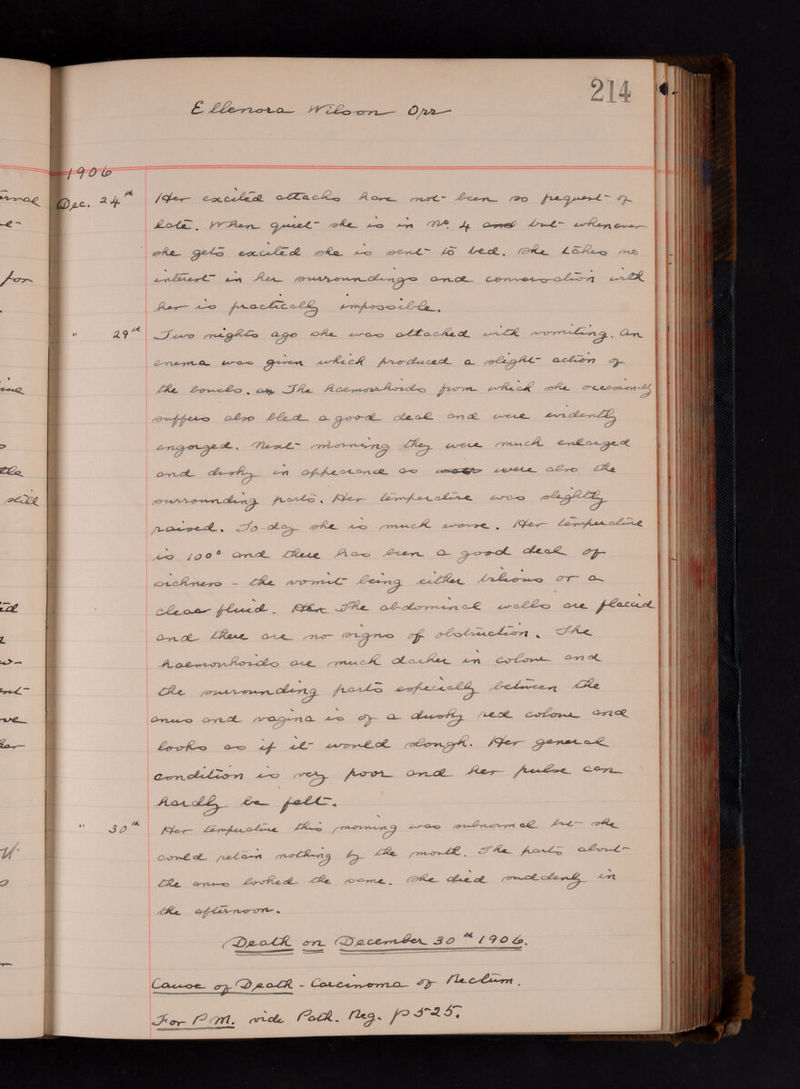 214
Ellenora Wilson Orr
1906
Dec. 24th Her excited attacks have not been so frequent of
late. When quiet she is in No 4 and but whenever
she gets excited she is sent to bed. She takes no
interest in her surroundings and conversation with
her is practically impossible.
" 29th Two nights ago she was attacked with vomiting. An
enema was given which produced a slight action of
the bowels. The haemorrhoids from which she occasionally
suffers also bled a good deal and were evidently
engorged. Next morning they were much enlarged
and dusky in appearance as were also the
surrounding parts. Her temperature was slightly
raised. To-day she is much worse. Her temperature
is 100° and there has been a good deal of
sickness - the vomit being either bilious or a
clear fluid. The abdominal walls are flaccid
and there are no signs of obstruction. The
haemorrhoids are much darker in colour and
the surrounding parts especially between the
anus and vagina is of a dusky red colour and
looks as if it would slough. Her general
condition is very poor and her pulse can
hardly be felt.
" 30th Her temperature this morning was subnormal but she
could retain nothing by the mouth. The parts about
the anus looked the same. She died suddenly in
the afternoon.
Death on December 30th 1906.
Cause of Death - Carcinoma of Rectum.
For P.M. vide Path. Reg. p 525.